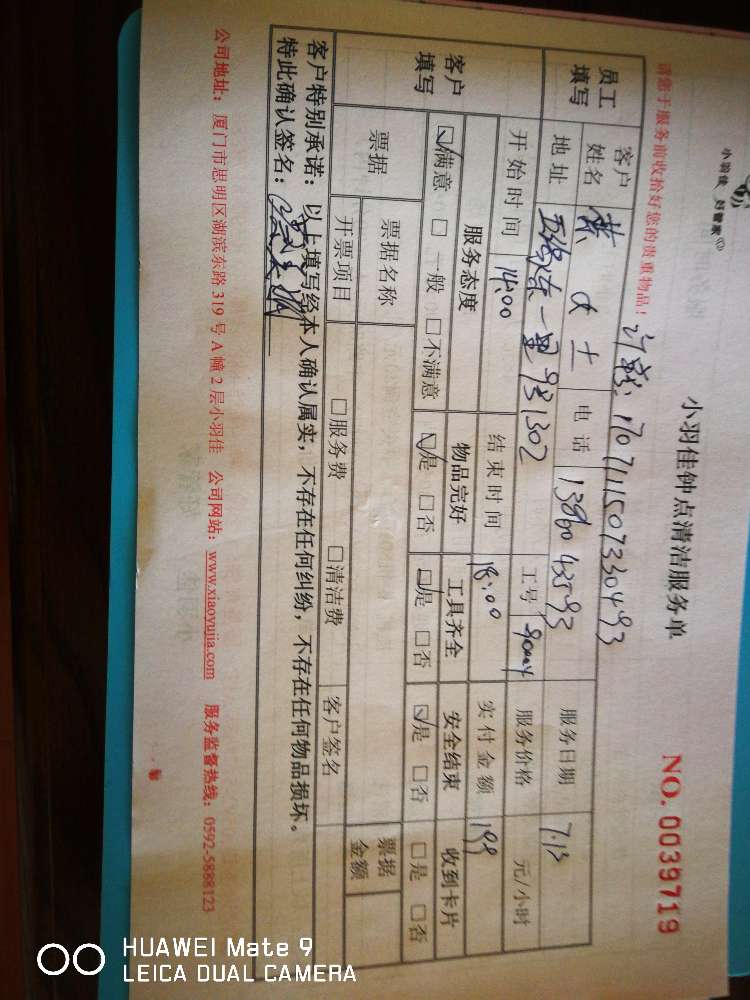 小羽佳 好管家
小羽佳钟点清洁服务单
请您于服务前收拾好您的贵重物品!
NO. 0039719
1707111507330493
员工填写
客户姓名 黄女士 电话 服务日期 7.13
地址 一里 1302 工号 服务价格 元/小时
客户填写
开始时间 14:00 结束时间 18:00 实付金额 199
服务态度 物品完好 工具齐全 安全结束 收到卡片
☑满意 □一般 □不满意 ☑是 □否 ☑是 □否 ☑是 □否 □是 □否
票据 票据名称 票据金额
开票项目 □服务费 □清洁费 客户签名
客户特别承诺:以上填写经本人确认属实,不存在任何纠纷,不存在任何物品损坏。
特此确认签名:
公司地址:厦门市思明区湖滨东路 319 号 A 幢 2 层小羽佳 公司网站:www.xiaoyujia.com 服务监督热线:0592-5888123
HUAWEI Mate 9
LEICA DUAL CAMERA